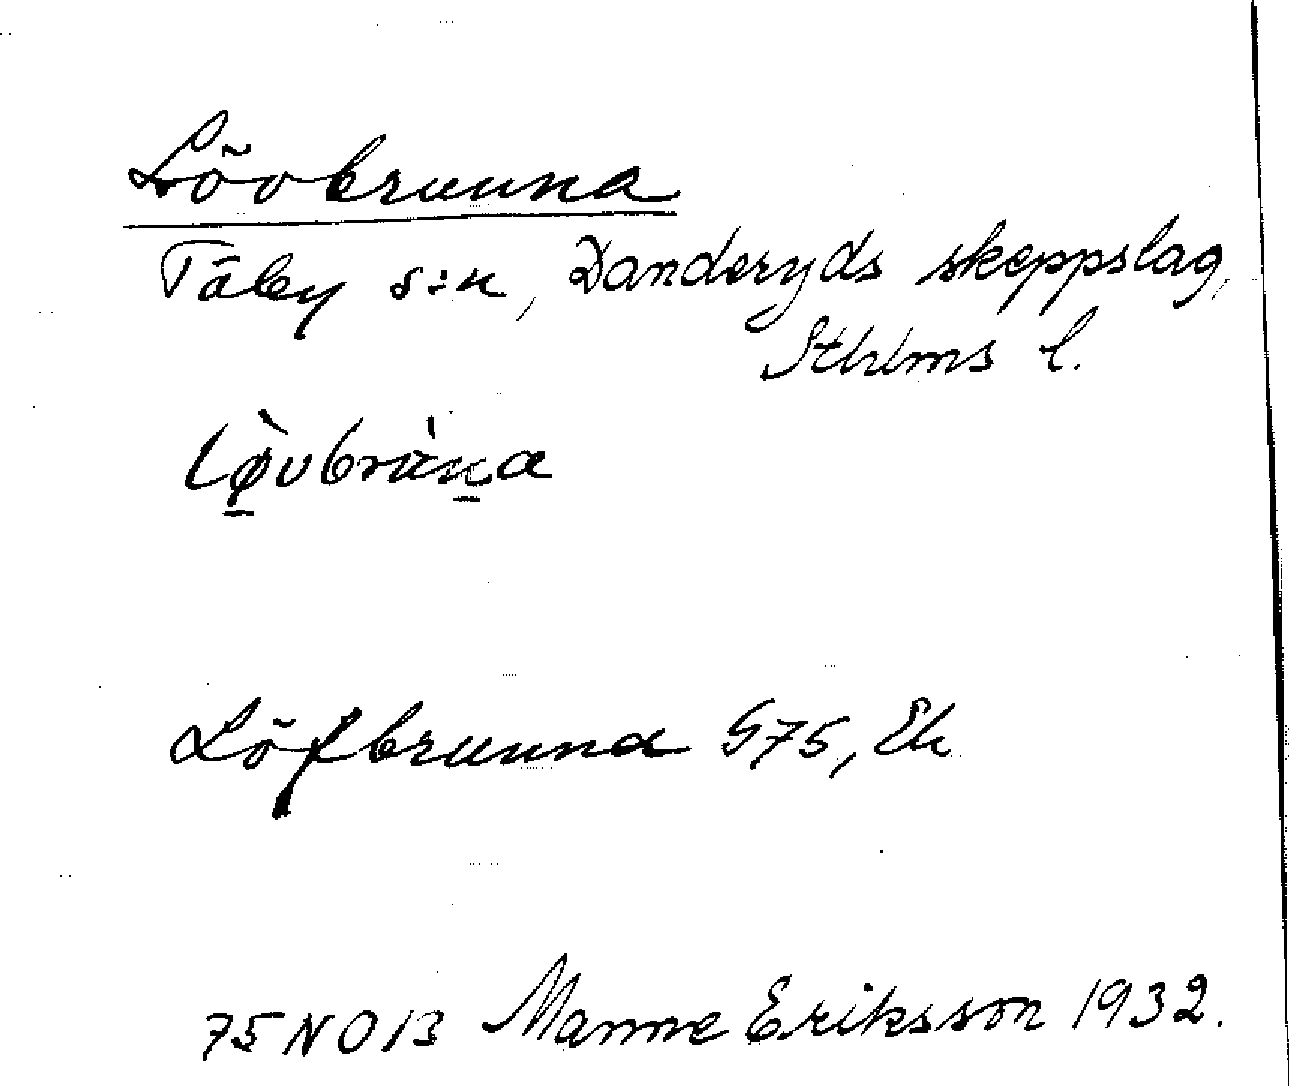 Lövbrunna
Täby s:n, Danderyds skeppslag,
Sthlms l.
Löfbrunna G75, Ek
75 NO 13 Manne Eriksson 1932.